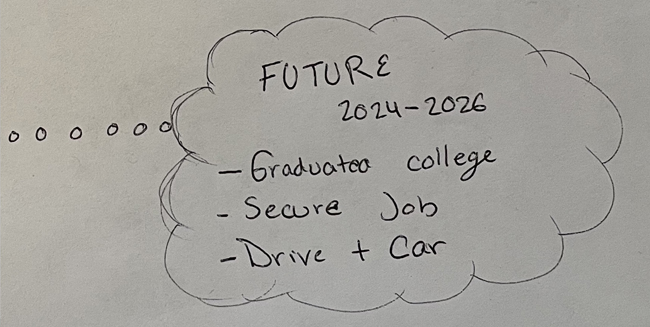 FUTURE
2024-2026
- Graduated college
- Secure Job
- Drive + Car